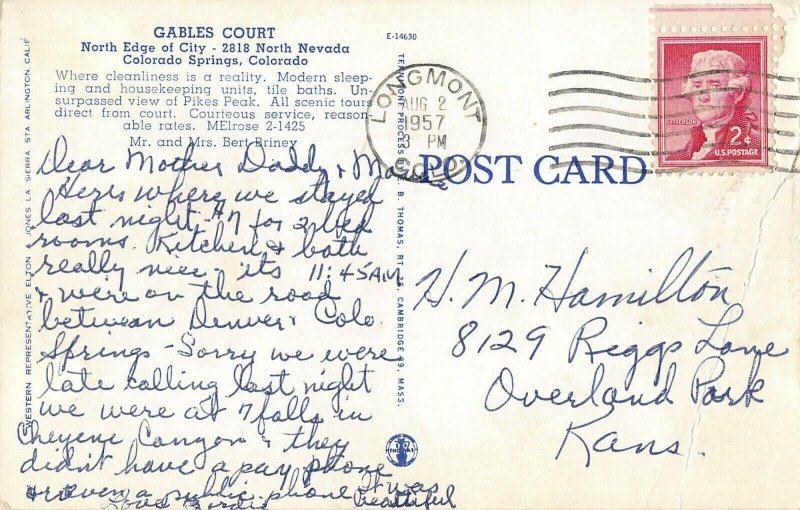 GABLES COURT
North Edge of City - 2818 North Nevada
Colorado Springs, Colorado
Where cleanliness is a reality. Modern sleep-
ing and housekeeping units, tile baths. Un-
surpassed view of Pikes Peak. All scenic tours
direct from court. Courteous service, reason-
able rates. MElrose 2-1425
Mr. and Mrs. Bert Briney
E-14630
WESTERN REPRESENTATIVE ELTON A JONES LA SIERRA STA ARLINGTON, CALIF
Dear Mother Daddy &
Heres where we stayed
last night - $7 for 2 bed
rooms. Kitchen & bath
really nice - its 11:45 AM
& we're on the road
between Denver & Colo.
Springs - Sorry we were
late calling last night
we were at 7 falls in
Cheyene Canyon & they
didn't have a pay phone
or even a public phone it was
beautiful
Love
B. THOMAS, RT. 16, CAMBRIDGE 39, MASS.
THOMAS
LONGMONT
AUG 2
1957
3 PM
COLO
POST CARD
JEFFERSON
2¢
U.S. POSTAGE
H. M. Hamilton
8129 Riggs Lane
Overland Park
Kans.